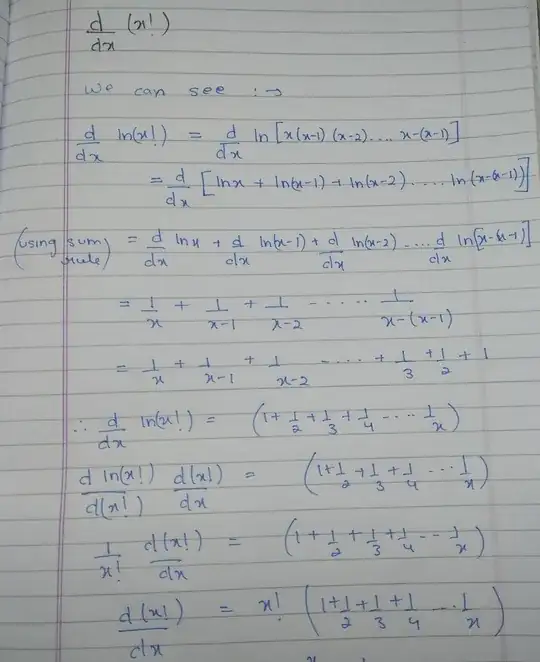 d/dx (x!)
we can see :→
d/dx ln(x!) = d/dx ln[x(x-1)(x-2).... x-(x-1)]
= d/dx [lnx + ln(x-1) + ln(x-2)...... ln(x-(x-1))]
(using sum rule) = d/dx lnx + d/dx ln(x-1) + d/dx ln(x-2) -... d/dx ln[x-(x-1)]
= 1/x + 1/x-1 + 1/x-2 ------ 1/x-(x-1)
= 1/x + 1/x-1 + 1/x-2 - .... + 1/3 + 1/2 + 1
∴ d/dx ln(x!) = (1 + 1/2 + 1/3 + 1/4 ---- 1/x)
d ln(x!)/d(x!) d(x!)/dx = (1 + 1/2 + 1/3 + 1/4 --- 1/x)
1/x! d(x!)/dx = (1 + 1/2 + 1/3 + 1/4 --- 1/x)
d(x!)/dx = x! (1 + 1/2 + 1/3 + 1/4 ... 1/x)